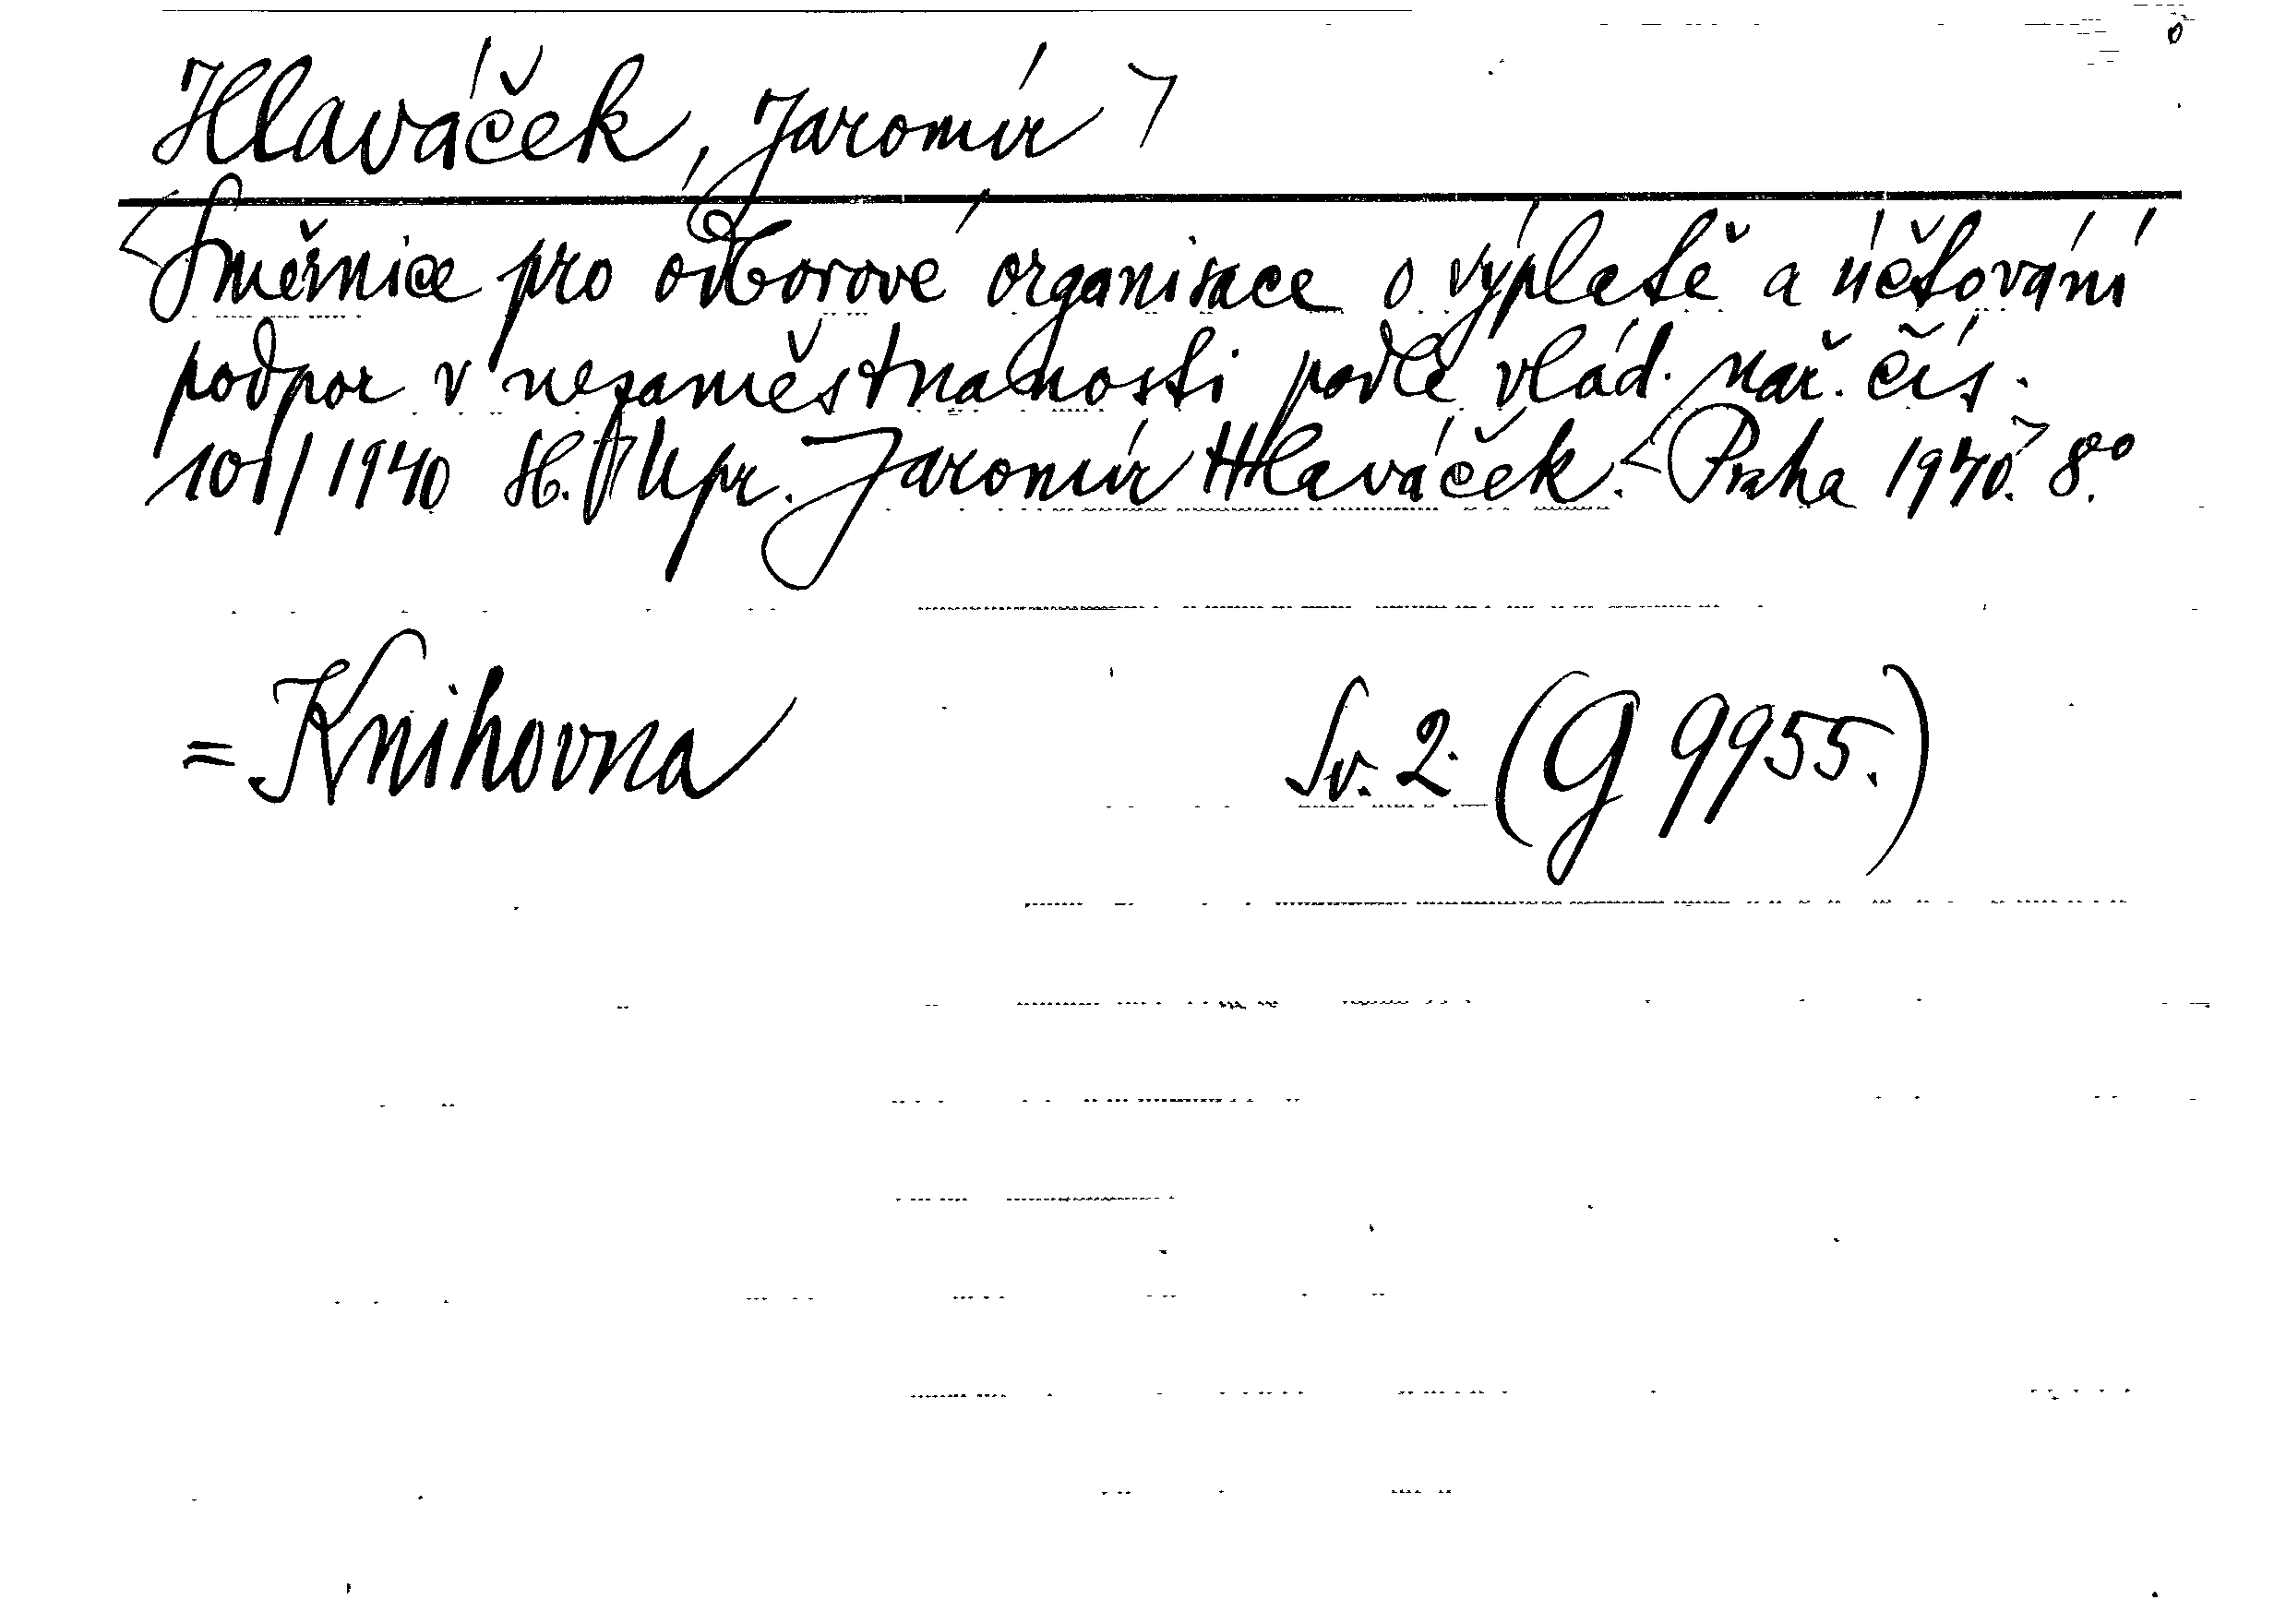 Hlaváček, Jaromír
Směrnice pro odborové organisace o výplatě a účtování
podpor v nezaměstnanosti podle vlád. nař. čís.
101/1940 Sb. Upr. Jaromír Hlaváček. Praha 1940. 8°.
= Knihovna Sv. 2. (G 9955.)